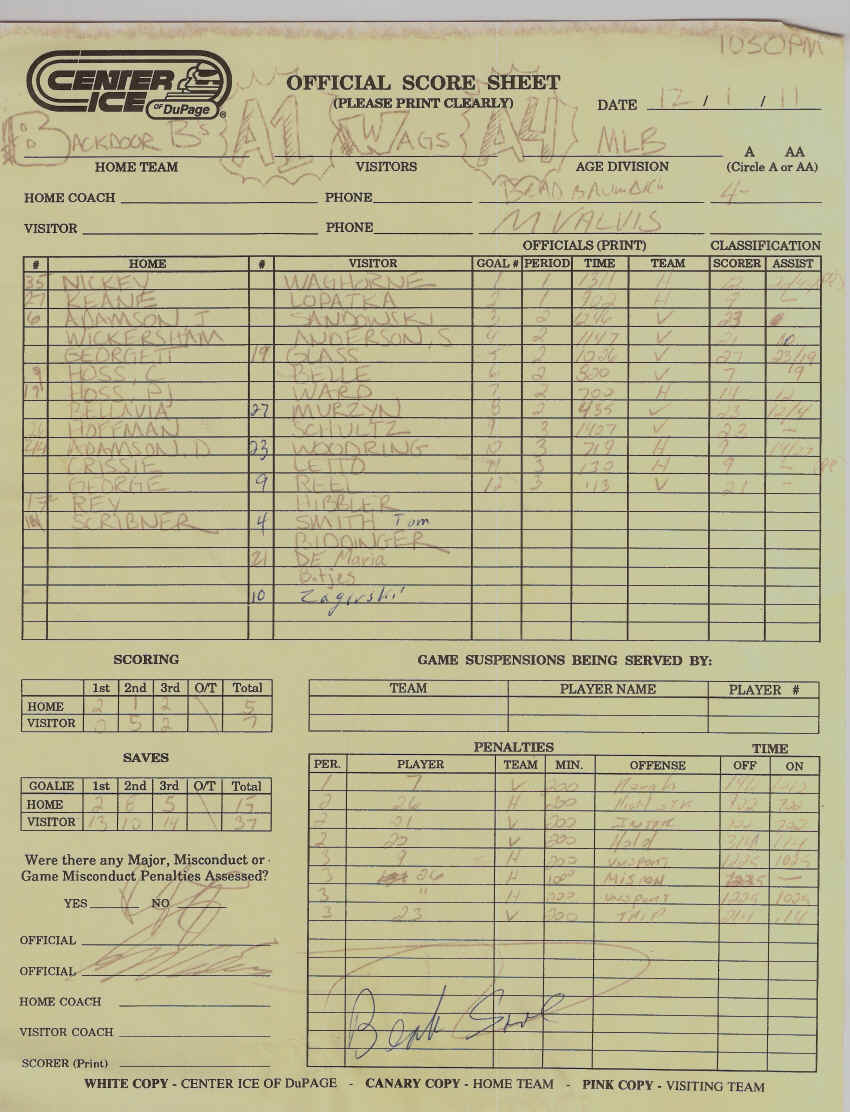 1050PM
CENTER ICE OF DuPAGE
OFFICIAL SCORE SHEET
(PLEASE PRINT CLEARLY)
DATE 12 / 1 / 11
BACKDOOR B's A1 WAGS A4 MLB
HOME TEAM VISITORS AGE DIVISION A AA (Circle A or AA)
HOME COACH PHONE 4-
VISITOR PHONE M VALVIS
OFFICIALS (PRINT) CLASSIFICATION
# HOME # VISITOR GOAL # PERIOD TIME TEAM SCORER ASSIST
35 NICKEY WAGHORNE 1 1 1311 H 12
27 KEANE LOPATKA 2 1 902 H 9 -
6 ADAMSON J SANDOWSKI 3 2 V 23
WICKERSHAM ANDERSON, S 4 2 1147 V 21 10
GEORGETI 19 GLASS 5 2 1026 V 27 23/19
9 HOSS, C BELLE 6 2 800 V 7 19
HOSS, PJ WARD 7 2 702 H 14 12
BELLAVIA 27 MURZYN 8 2 435 V 23 12/4
26 HOFFMAN SCHULTZ 9 3 1407 V 23 -
44 ADAMSON, D 23 WOODRING 10 3 719 H 9 14/27
CRISSIE LETTO 11 3 130 H 9 -
GEORGE 9 REEL 12 3 113 V 21 -
REY HIBBLER
SCRIBNER 4 SMITH Tom
BIDDINGER
21 DE Maria
Botjes
10
SCORING GAME SUSPENSIONS BEING SERVED BY:
1st 2nd 3rd O/T Total TEAM PLAYER NAME PLAYER #
HOME 2 1 2 5
VISITOR 0 5 2 7
SAVES PENALTIES TIME
PER. PLAYER TEAM MIN. OFFENSE OFF ON
GOALIE 1st 2nd 3rd O/T Total
HOME 2 8 5 15
VISITOR 13 10 14 37
1 7 V 200 Rough
2 26 H 200 High STK 902 702
2 21 V 200
2 V 200 Hold 314 114
3 9 H 200 UNSPORT 1225 1025
3 26 H 1000 -
3 " H 200 UNSPORT 1225 1025
3 23 V 200 TRIP 214 :14
Were there any Major, Misconduct or
Game Misconduct Penalties Assessed?
YES NO
OFFICIAL
OFFICIAL
HOME COACH
VISITOR COACH
SCORER (Print)
WHITE COPY - CENTER ICE OF DuPAGE - CANARY COPY - HOME TEAM - PINK COPY - VISITING TEAM